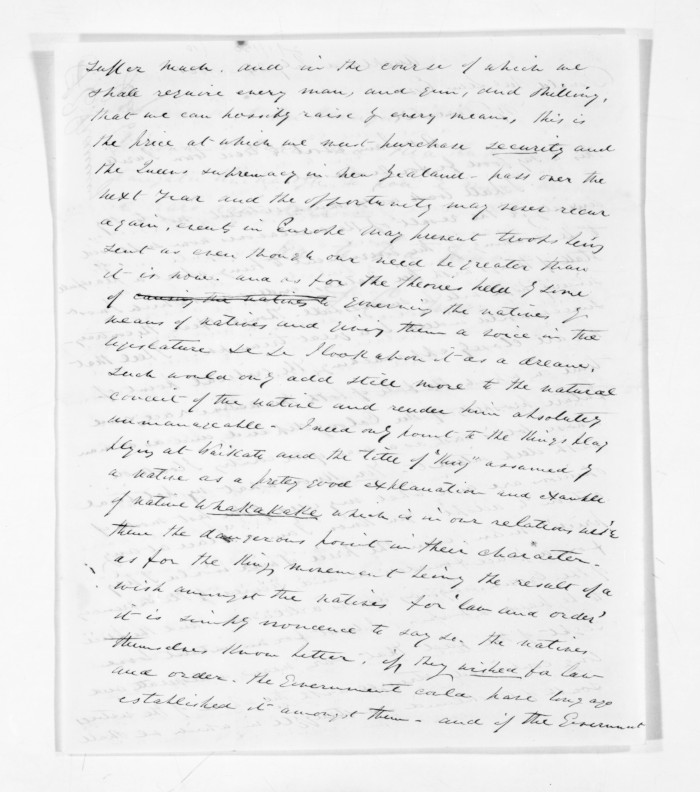 suffer much. and in the course of which we
shall require every man, and gun, and shilling,
that we can possibly raise by every means, this is
the price at which we must purchase security and
the Queens supremacy in New Zealand - pass over the
next year and the opportunity may never recur
again, events in Europe may present troops being
sent us even though our need be greater than
it is now. and as for the theories held by some
of causing the natives to governing the natives by
means of natives and giving them a voice in the
legislature &c &c I look upon it as a dream,
such would only add still more to the natural
conceit of the native and render him absolutely
unmanageable - I need only point to the Kings flag
flying at Waikato and the title of "King" assumed by
a native as a pretty good explanation and example
of native Whakakake which is in our relations with
them the dangerous point in their character -
as for the Kings movement being the result of a
wish amongst the natives for 'law and order'
it is simply noncence to say so. the natives
themselves know better, if they wished for law
and order. the Government could have long ago
established it amongst them - and if the Government